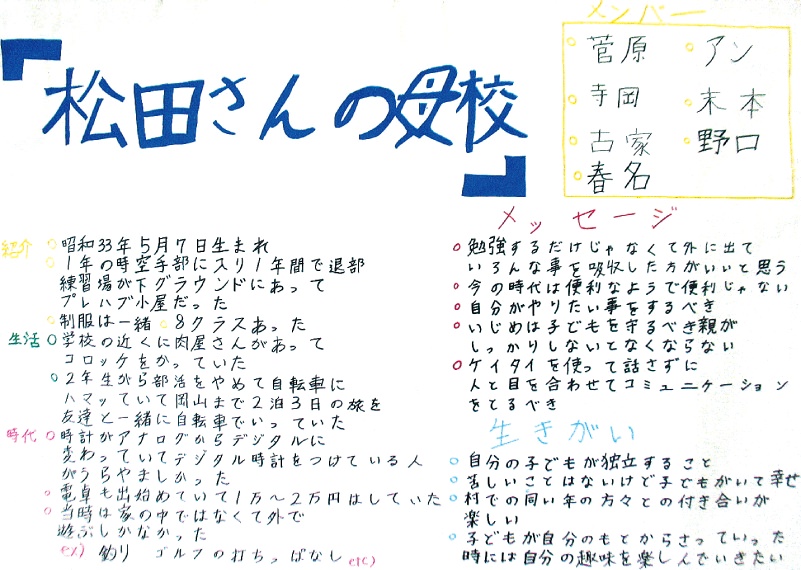 『松田さんの母校』
メンバー
○菅原 ○アン
○寺岡 ○末本
○古家 ○野口
○春名
紹介 ○昭和33年5月7日生まれ
○1年の時空手部に入り1年間で退部
練習場が下グラウンドにあって
プレハブ小屋だった
○制服は一緒 ○8クラスあった
生活 ○学校の近くに肉屋さんがあって
コロッケをかっていた
○2年生から部活をやめて自転車に
ハマッていて岡山まで2泊3日の旅を
友達と一緒に自転車でいっていた
時代 ○時計がアナログからデジタルに
変わっていてデジタル時計をつけている人
がうらやましかった
○電卓も出始めていて1万〜2万円はしていた
○当時は家の中ではなくて外で
遊ぶしかなかった
ex) 釣り ゴルフの打ちっぱなし etc)
メッセージ
○勉強するだけじゃなくて外に出て
いろんな事を吸収した方がいいと思う
○今の時代は便利なようで便利じゃない
○自分がやりたい事をするべき
○いじめは子どもを守るべき親が
しっかりしないとなくならない
○ケイタイを使って話さずに
人と目を合わせてコミュニケーション
をとるべき
生きがい
○自分の子どもが独立すること
○苦しいことはないけど子どもがいて幸せ
○村での同い年の方々との付き合いが
楽しい
○子どもが自分のもとからさっていった
時には自分の趣味を楽しんでいきたい